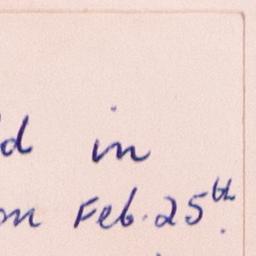 d in
on Feb. 25th.